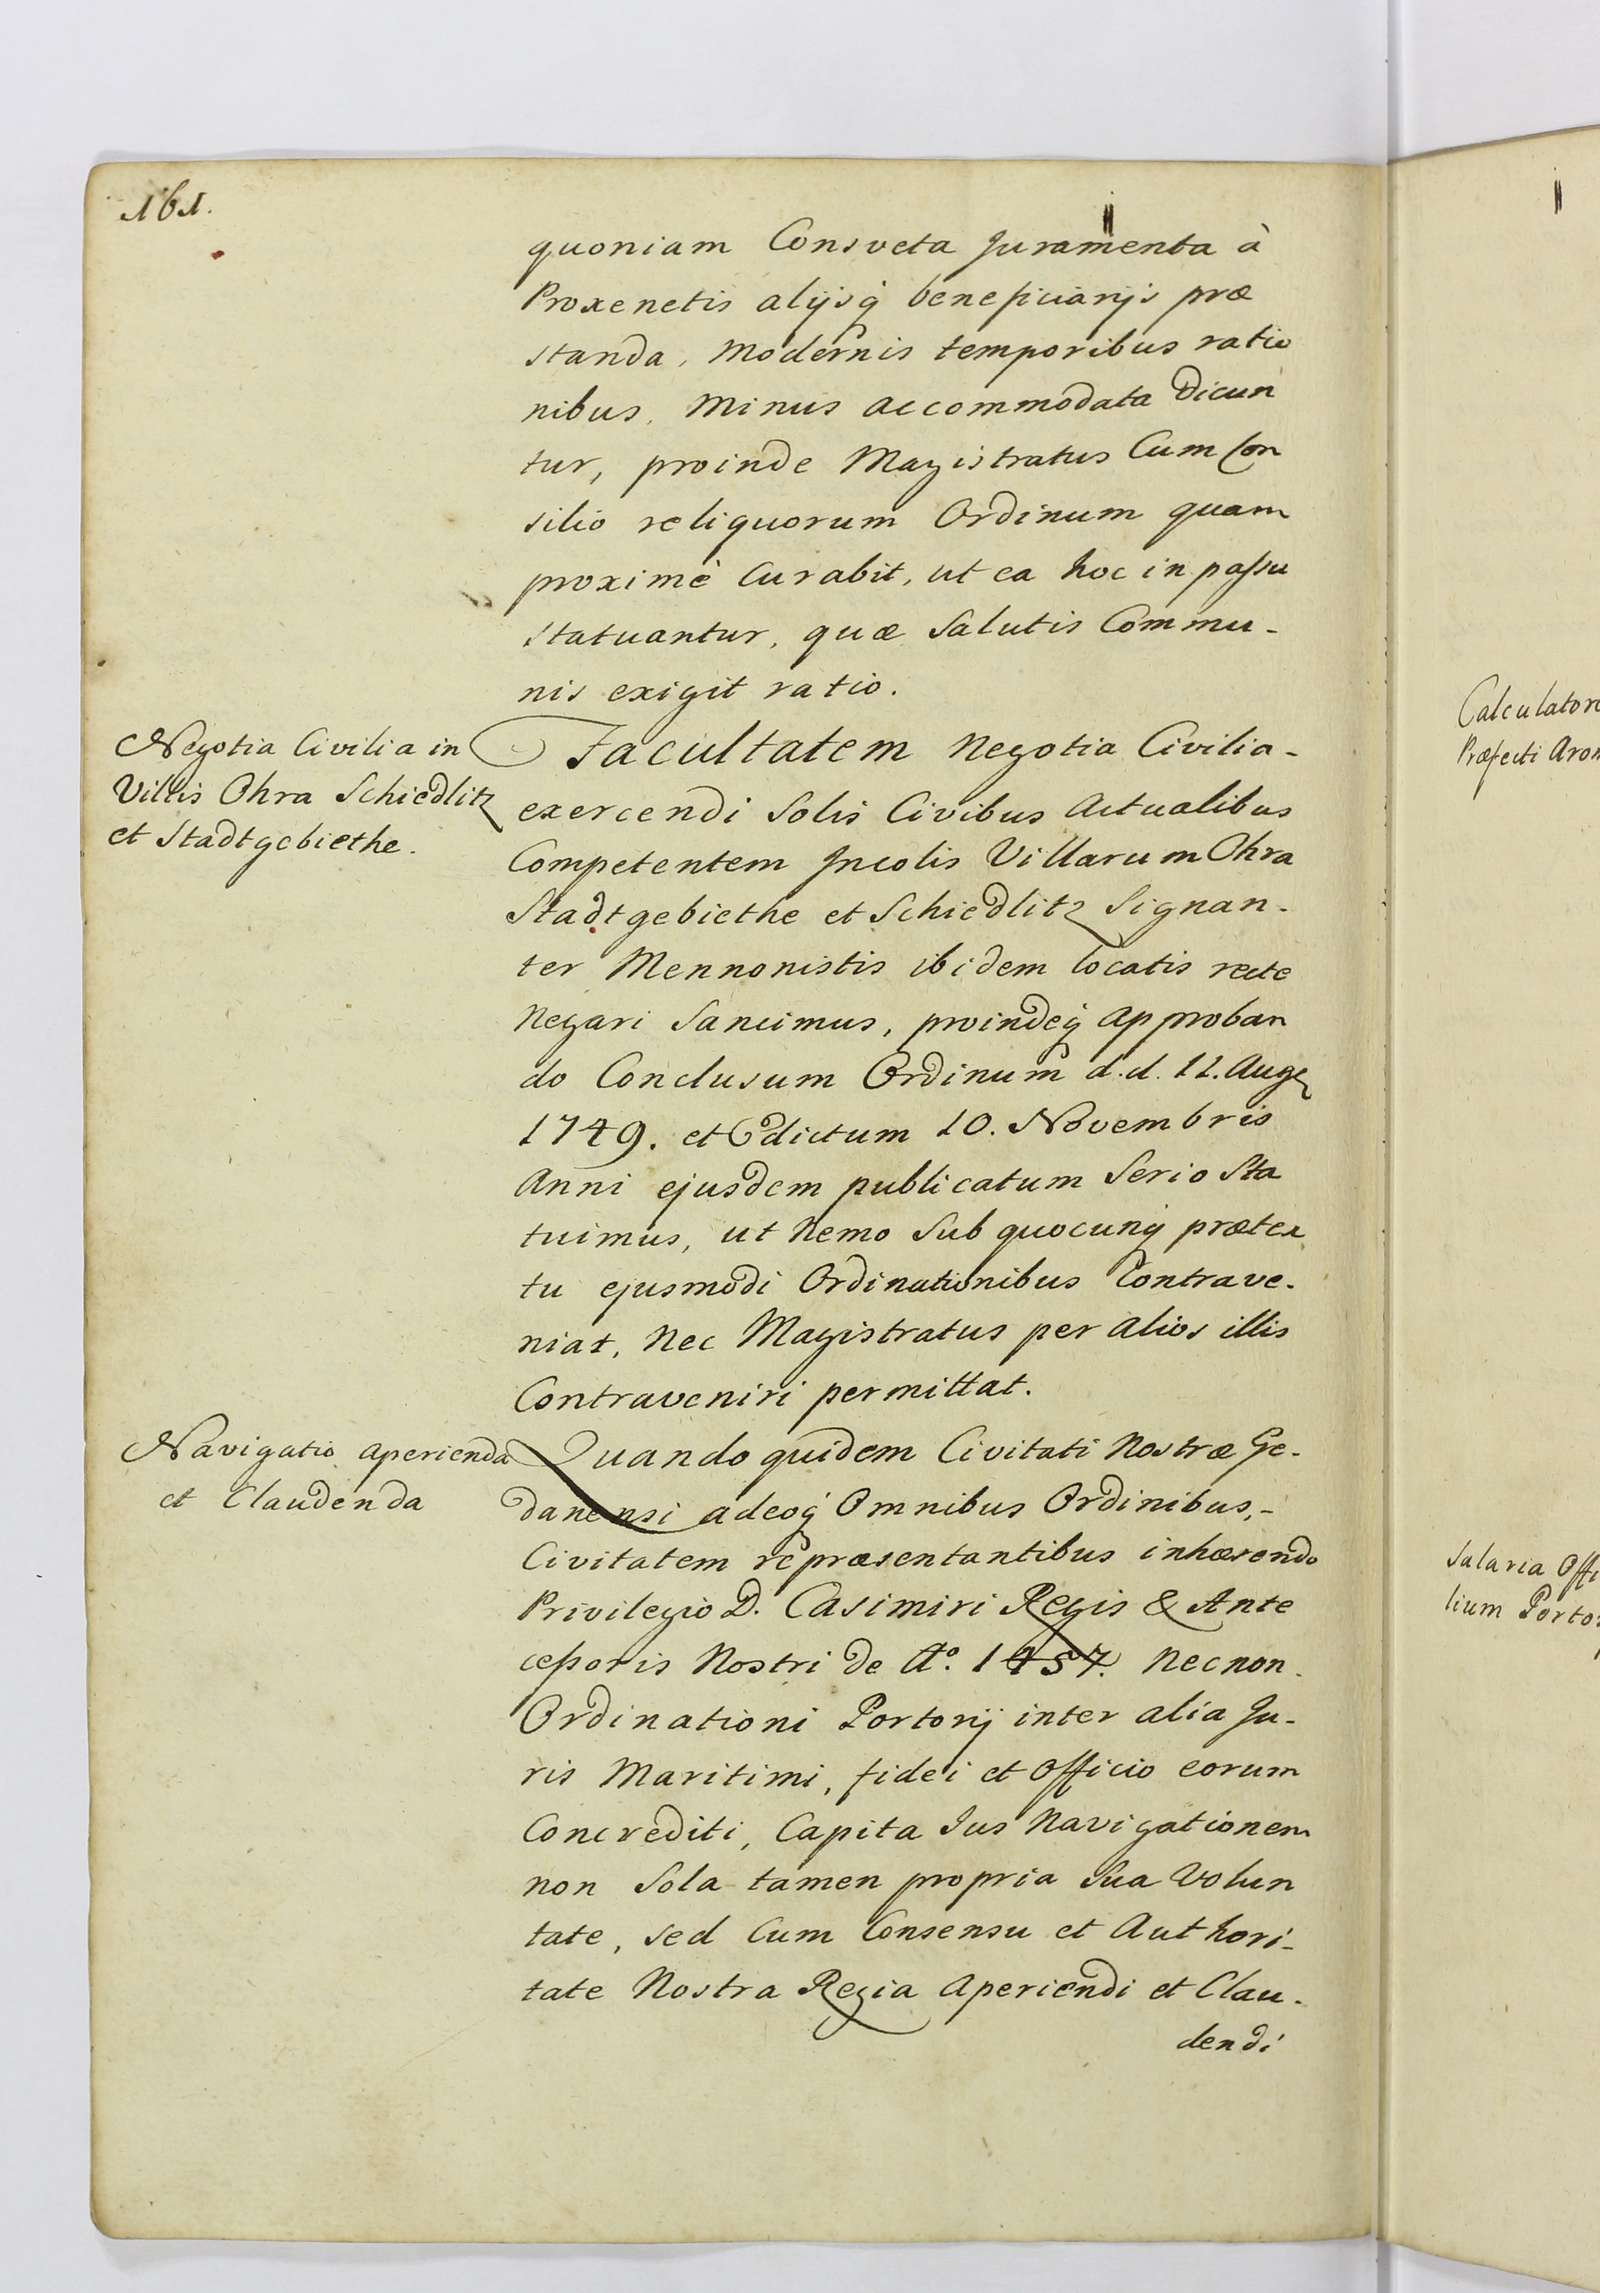 161.
quoniam Consveta Juramenta à
Proxenetis alijsq beneficiarijs præ
standa, modernis temporibus ratio
nibus, minus accommodata dicun
tur, proinde Magistratus Cum Con
silio reliquorum Ordinum quam
proximè Curabit, ut ea hoc in passu
statuantur, quæ Salutis Commu-
nis exigit ratio.
Negotia Civilia in
Villis Ohra Schiedlitz
et Stadtgebiethe.
Facultatem Negotia Civilia-
exercendi Solis Civibus Actualibus
Competentem Incolis Villarum Ohra
Stadtgebiethe et Schiedlitz Signan-
ter Mennonistis ibidem locatis recte
Negari Sancimus, proindeq approban
do Conclusum Ordinum d.d. 12. Aug
1749. et Edictum 10. Novembris
Anni ejusdem publicatum Serio Sta
tuimus, ut Nemo Sub quocunq prætex
tu ejusmodi Ordinationibus Contrave-
niat, Nec Magistratus per alios illis
Contraveniri permittat.
Navigatio aperienda
et Claudenda
Quando quidem Civitati Nostræ Ge-
danensi adeoq Omnibus Ordinibus,-
Civitatem repræsentantibus inhærendo
Privilegio D. Casimiri Regis & Ante
cessoris Nostri de Aº. 1457. Necnon
Ordinationi Portorij inter alia Ju-
ris Maritimi, fidei et Officio eorum
Concrediti, Capita Jus Navigationem
non Sola tamen propria Sua Volun
tate, sed Cum Consensu et Authori-
tate Nostra Regia Aperiendi et Clau-
dendi
Calculator
Præfecti
Salaria Offi
lium Porto